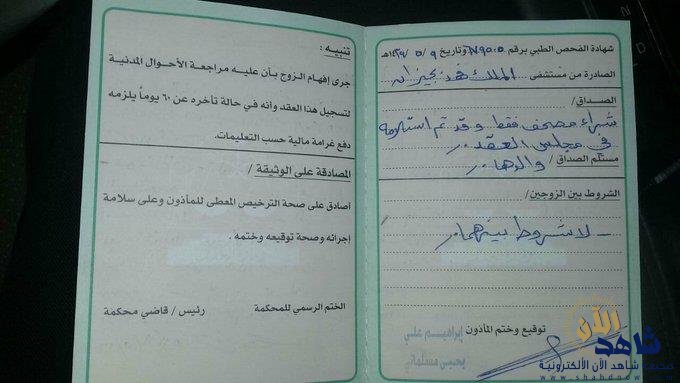 شهادة الفحص الطبي برقم ٧٩٥٠٥ وتاريخ ١٤٣٩/٥/٩هـ
الصادرة من مستشفى الملك فهد بجيزان
الصداق /
شراء مصحف فقط وقد تم استلامه
في مجلس العقد ..
مستلم الصداق / والدها ..
الشروط بين الزوجين /
- لا شروط بينهما ..
توقيع وختم المأذون
إبراهيم علي
يحيى مسملي
تنبيه :
جرى إفهام الزوج بأن عليه مراجعة الأحوال المدنية
لتسجيل هذا العقد وأنه في حالة تأخره عن ٦٠ يوماً يلزمه
دفع غرامة مالية حسب التعليمات.
المصادقة على الوثيقة /
أصادق على صحة الترخيص المعطى للمأذون وعلى سلامة
إجرائه وصحة توقيعه وختمه .
الختم الرسمي للمحكمة
رئيس / قاضي محكمة
شاهد الآن
صحيفة شاهد الآن الألكترونية